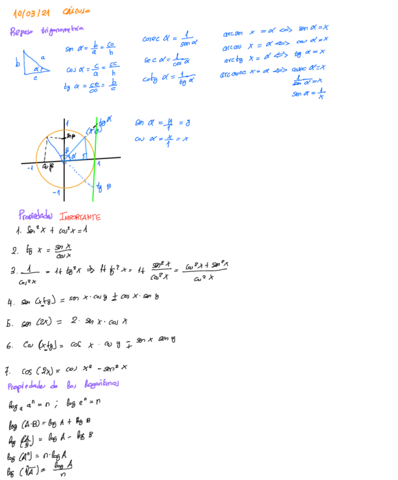 10/03/21 CÁLCULO
Repaso trigonometría
b a α c
sen α = b/a = co/h
cos α = c/a = cc/h
tg α = co/cc = b/c
cosec α = 1/sen α
sec α = 1/cos α
cotg α = 1/tg α
arcsen x = α <=> sen α = x
arccos x = α <=> cos α = x
arctg x = α <=> tg α = x
arccosec x = α <=> cosec α = x
1/sen α = x
sen α = 1/x
sen α = y/1 = y
cos α = x/1 = x
1
tg α
-1
1
-1
tg β
Propiedades IMPORTANTE
1. sen²x + cos²x = 1
2. tg x = sen x/cos x
3. 1/cos²x = 1 + tg²x => 1 + tg²x = 1 + sen²x/cos²x = cos²x + sen²x/cos²x
4. sen (x±y) = sen x · cos y ± cos x · sen y
5. sen (2x) = 2 · sen x · cos x
6. cos (x±y) = cos x · cos y ∓ sen x sen y
7. cos (2x) = cos x² - sen² x
Propiedades de los logaritmos
log a aⁿ = n ; log eⁿ = n
log (A·B) = log A + log B
log (A/B) = log A - log B
log (Aⁿ) = n · log A
log (ⁿ√A) = log A/n